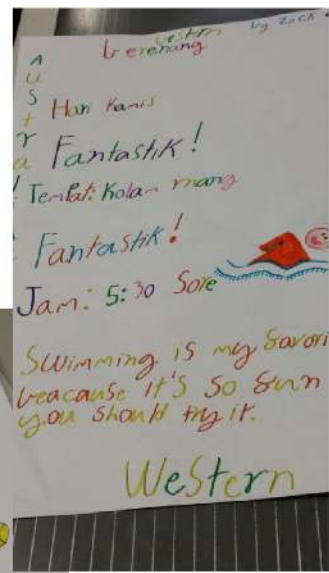 by Zach
Western
berenang
Austra
Hari Kamis
Fantastik!
Tempat: Kolam renang
Fantastik!
Jam: 5:30 Sore
Swimming is my favori
beacause it's so fun
you should try it.
Western